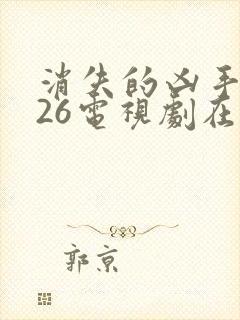 消失的凶手
26電視劇在
郭京